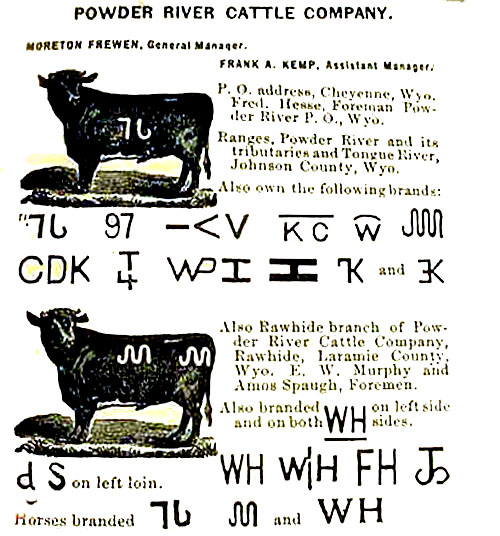 POWDER RIVER CATTLE COMPANY.
MORETON FREWEN, General Manager.
FRANK A. KEMP, Assistant Manager.
P. O. address, Cheyenne, Wyo.
Fred. Hesse, Foreman Pow-
der River P. O., Wyo.
Ranges, Powder River and its
tributaries and Tongue River,
Johnson County, Wyo.
Also own the following brands:
97 —<V K C W
CDK WP I K and
Also Rawhide branch of Pow-
der River Cattle Company,
Rawhide, Laramie County,
Wyo. E. W. Murphy and
Amos Spaugh, Foremen.
Also branded WH on left side
and on both sides.
d S on left loin.
WH W|H FH
Horses branded and WH